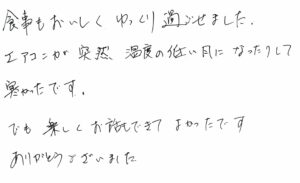 食事もおいしく ゆっくり過ごせました.
エアコンが突然 温度の低い風になったりして
寒かったです。
でも 楽しくお話もできて よかったです
ありがとうございました